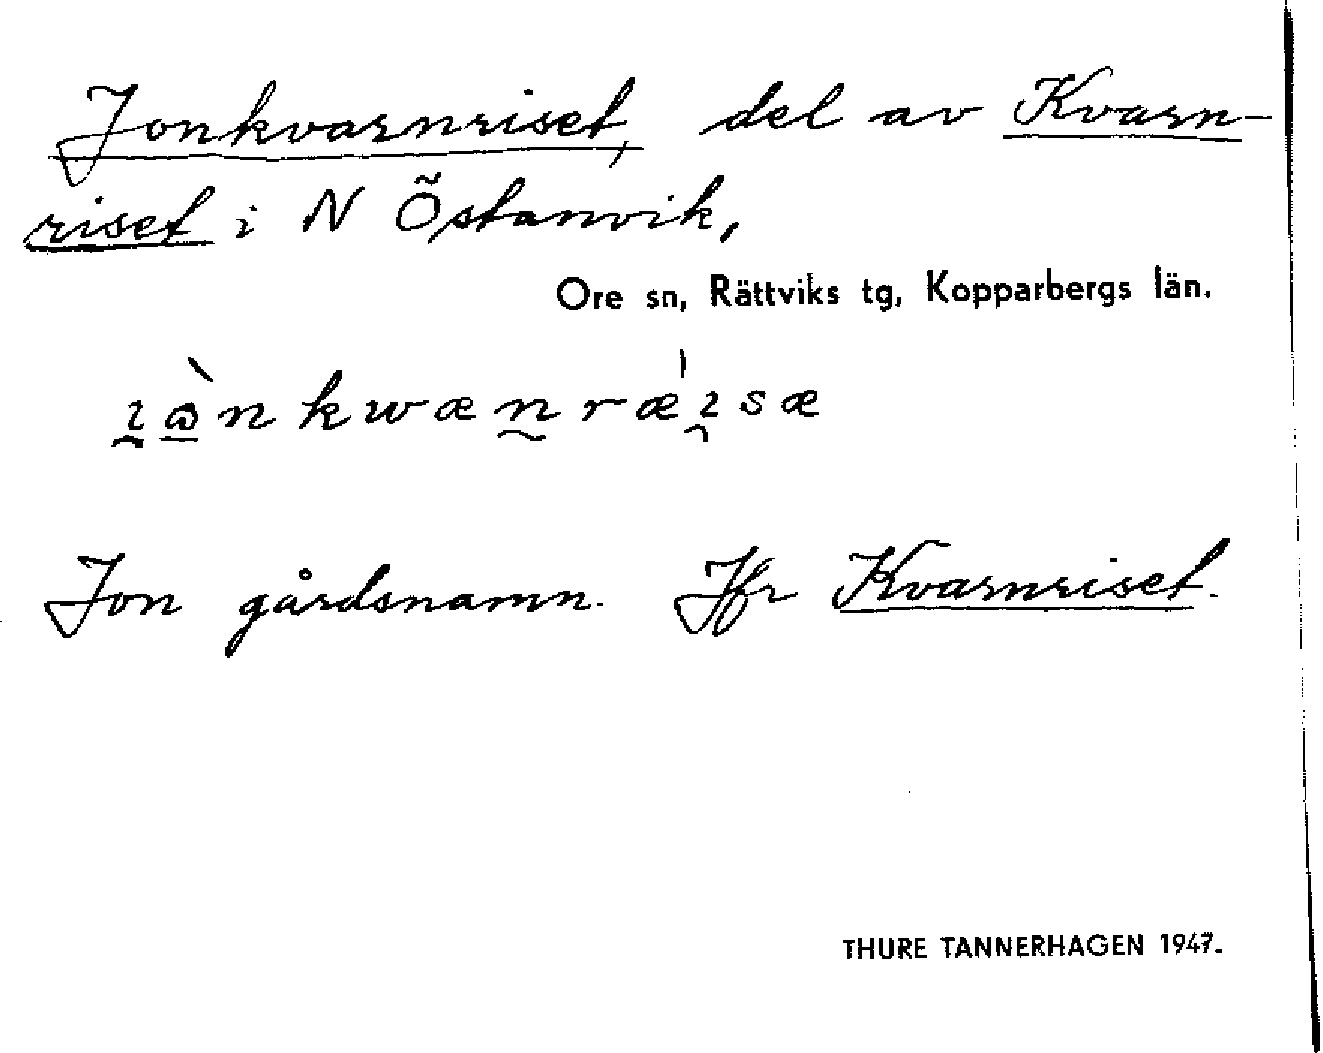 Jonkvarnriset, del av Kvarn-
riset i N Östanvik,
Ore sn, Rättviks tg, Kopparbergs län.
Jon gårdsnamn. Jfr Kvarnriset.
THURE TANNERHAGEN 1947.